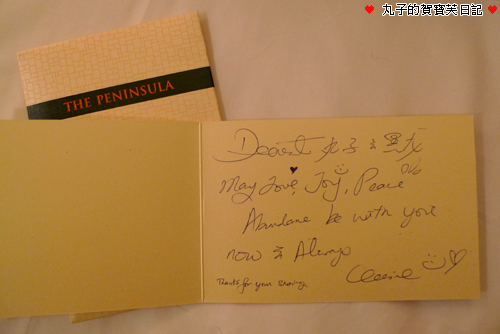 ♥ 丸子的賀寶芙日記 ♥
THE PENINSULA
Dearest 丸子 &
May Love, Joy, Peace
Abundance be with you
now & Always
Thanks for your sharing.